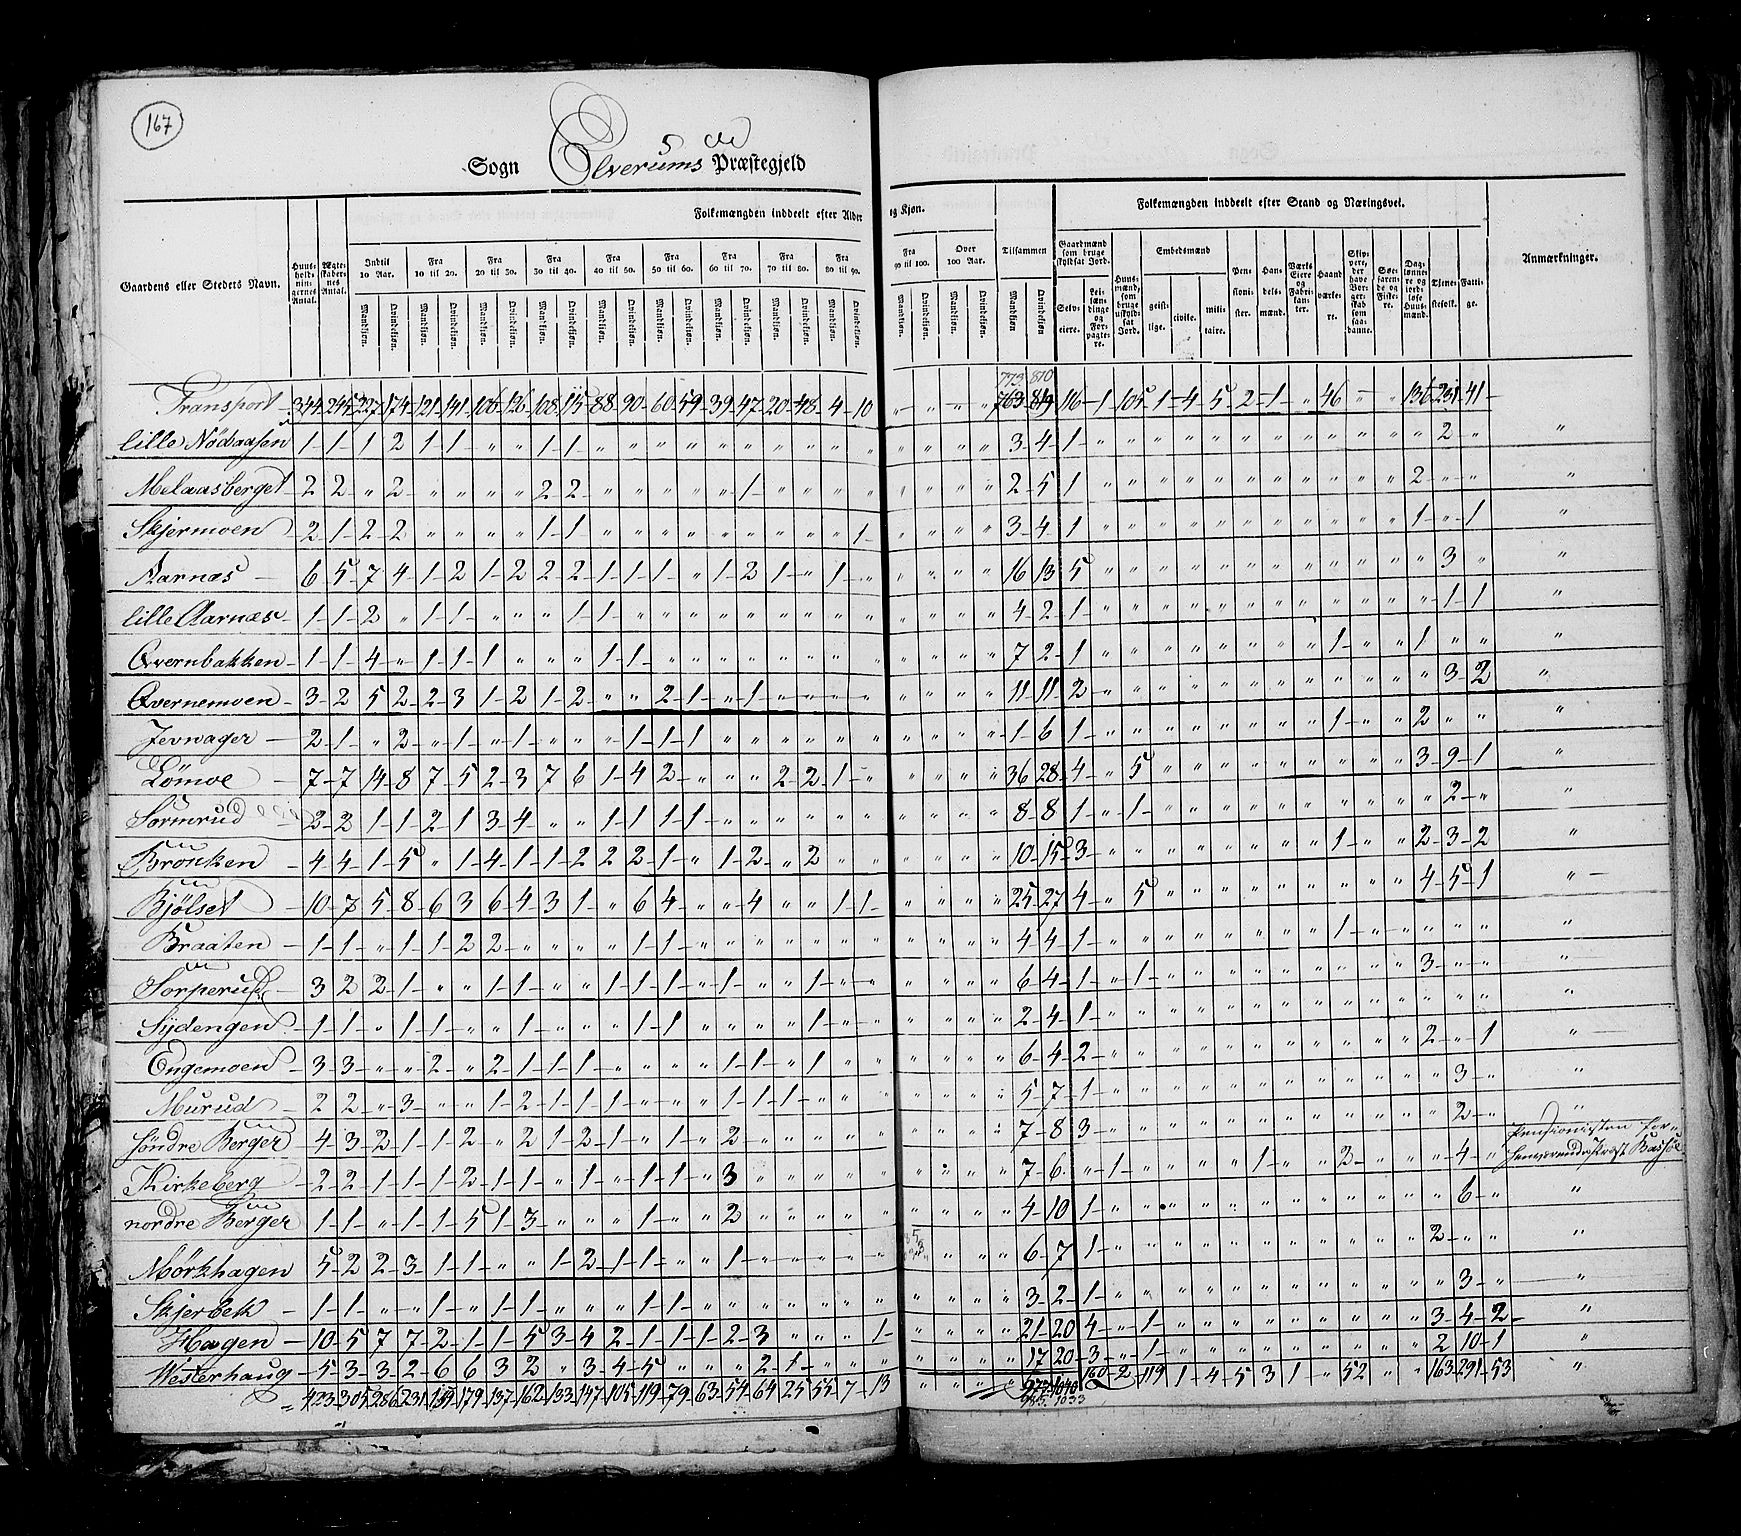 167
Sogn Elverums Præstegjeld
Folkemængden inddeelt efter Alder og Kjøn.
Folkemængden inddeelt efter Stand og Næringsvei.
Gaardens eller Stedets Navn.
Huusholdningernes Antal.
Ægteskabernes Antal.
Indtil 10 Aar.
Fra 10 til 20.
Fra 20 til 30.
Fra 30 til 40.
Fra 40 til 50.
Fra 50 til 60.
Fra 60 til 70.
Fra 70 til 80.
Fra 80 til 90.
Fra 90 til 100.
Over 100 Aar.
Tilsammen
Mandkjøn. Qvindekjøn.
Gaardmænd som bruge skyldsat Jord.
Selveiere.
Leilændinge og Forpagtere.
Huusmænd, som bruge uskyldsat Jord.
Embedsmænd
geistlige. civile. militaire.
Pensionister.
Handelsmænd.
Værks Eiere og Fabrikanter.
Haandværkere.
Daglønnere og jordløse Huusmænd.
Tjenestefolk.
Fattige.
Anmærkninger.
773 810
Transport 344 245 227 174 121 141 106 126 108 115 88 90 60 59 39 47 20 48 4 10 " " " " 763 819 116 1 105 1 4 5 2 1 " 46 " " 136 231 41
lille Nödaasen 1 1 1 2 1 1 " " 1 1 " " " " " " " " " " " " " " 3 4 1 " " " " " " " " " " " " 2 " "
Melaasberget 2 2 " 2 " " " " 2 2 " " " " " 1 " " " " " " " " 2 5 1 " " " " " " " " " " " 2 " " "
Skjermoen 2 1 2 2 " " " " 1 1 " " " " " " " " " 1 " " " " 3 4 1 " " " " " " " " " " " 1 " 1 "
Aarnæs 6 5 7 4 1 2 1 2 2 2 1 1 1 " 1 2 1 " 1 " " " " " 16 13 5 " " " " " " " " " " " " 3 " "
lille Aarnæs 1 1 2 " 1 1 " " " 1 1 " " " " " " " " " " " " 4 2 1 " " " " " " " " " " " " 1 1 "
Qvernbakken 1 1 4 " 1 1 1 " " " 1 1 " " " " " " " " " " " " 7 2 1 " " " " " " " " 1 " " 1 " " "
Qvernemoen 3 2 5 2 2 3 1 2 1 2 " " 2 1 " 1 " " " " " " " " 11 11 2 " " " " " " " " " " " " 3 2 "
Jevnager 2 1 " 2 " 1 " 1 " " " 1 1 1 " " " " " " " " " " 1 6 1 " " " " " " " " 1 " " 2 " " "
Lömoe 7 7 14 8 7 5 2 3 7 6 1 4 2 " " " 2 2 1 " " " " " 36 28 4 " 5 " " " " " " " " " 3 9 1 "
Sormrud 2 2 1 1 2 1 3 4 " " 1 1 1 1 " " " " " " " " " " 8 8 1 " 1 " " " " " " " " " " 2 " "
Brouken 4 4 1 5 " 1 4 1 1 2 2 2 1 " 1 2 " 2 " " " " " " 10 15 3 " " " " " " " " 1 " " 2 3 2 "
Bjölset 10 7 5 8 6 3 6 4 3 1 " 6 4 " " 4 " " 1 1 " " " " 25 27 4 " 5 " " " " " " " " " 4 5 1 "
Braaten 1 1 " 1 1 2 2 " " " " 1 1 " " " " " " " " " " " 4 4 1 " " " " " " " " 1 " " " " " "
Sorperud 3 2 2 1 " " 1 1 " " 1 1 1 " 1 " " 1 " " " " " " 6 4 1 " 1 " " " " " " " " " 3 " " "
Sydengen 1 1 " 1 1 " " 1 " " " 1 1 " " " " 1 " " " " " " 2 4 1 " " " " " " " " " " " " " " "
Engemoen 3 3 " " 2 " 2 1 1 1 " " " " 1 1 " 1 " " " " " " 6 4 2 " " " " " " " " " " " 2 " 1 "
Murud 2 2 " 3 " " 1 2 1 1 1 " " " 1 1 1 " " " " " " " 5 7 1 " " " " " " " " " " " " 3 " "
söndre Berger 4 3 2 1 1 2 " 2 1 2 1 " 1 " 2 " " " " " " " " " 7 8 3 " " " " " " " " " " " " 2 " "
Kirkeberg 2 2 1 1 1 2 1 1 " 1 " 1 1 " 3 " " " " " " " " " 7 6 " 1 " " " " 1 " " 2 " " " 4 " Pensionisten
nordre Berger 1 1 " 1 1 5 1 3 " " " 1 " " 2 " " " " " " " " " 4 10 1 " " " " " " " " " " " " 6 " "
Mörkhagen 5 2 2 3 1 1 " " 1 2 1 1 " " 1 " " " " " " " " " 6 7 1 " " " " " " " " " " " 2 " " "
Skjerbek 1 1 " " 1 " 1 1 " " " 1 1 " " " " " " " " " " " 3 2 1 " " " " " " " " " " " " 3 " "
Hagen 10 5 7 7 2 1 1 5 3 4 2 1 1 1 2 3 " " " 1 " " " " 21 20 4 " 1 " " " " " " " " " 3 4 2 "
Westerhaug 5 3 3 2 6 6 3 2 " 3 4 5 " " " 2 1 " " " " " " " 17 20 3 " 1 " " " " " " " " " 2 10 1 "
423 305 286 231 159 179 137 162 133 147 105 119 79 63 54 64 25 55 7 13 " " " " 977 1040 160 2 119 1 4 5 3 1 " 52 " " 163 291 53 "
985 1033